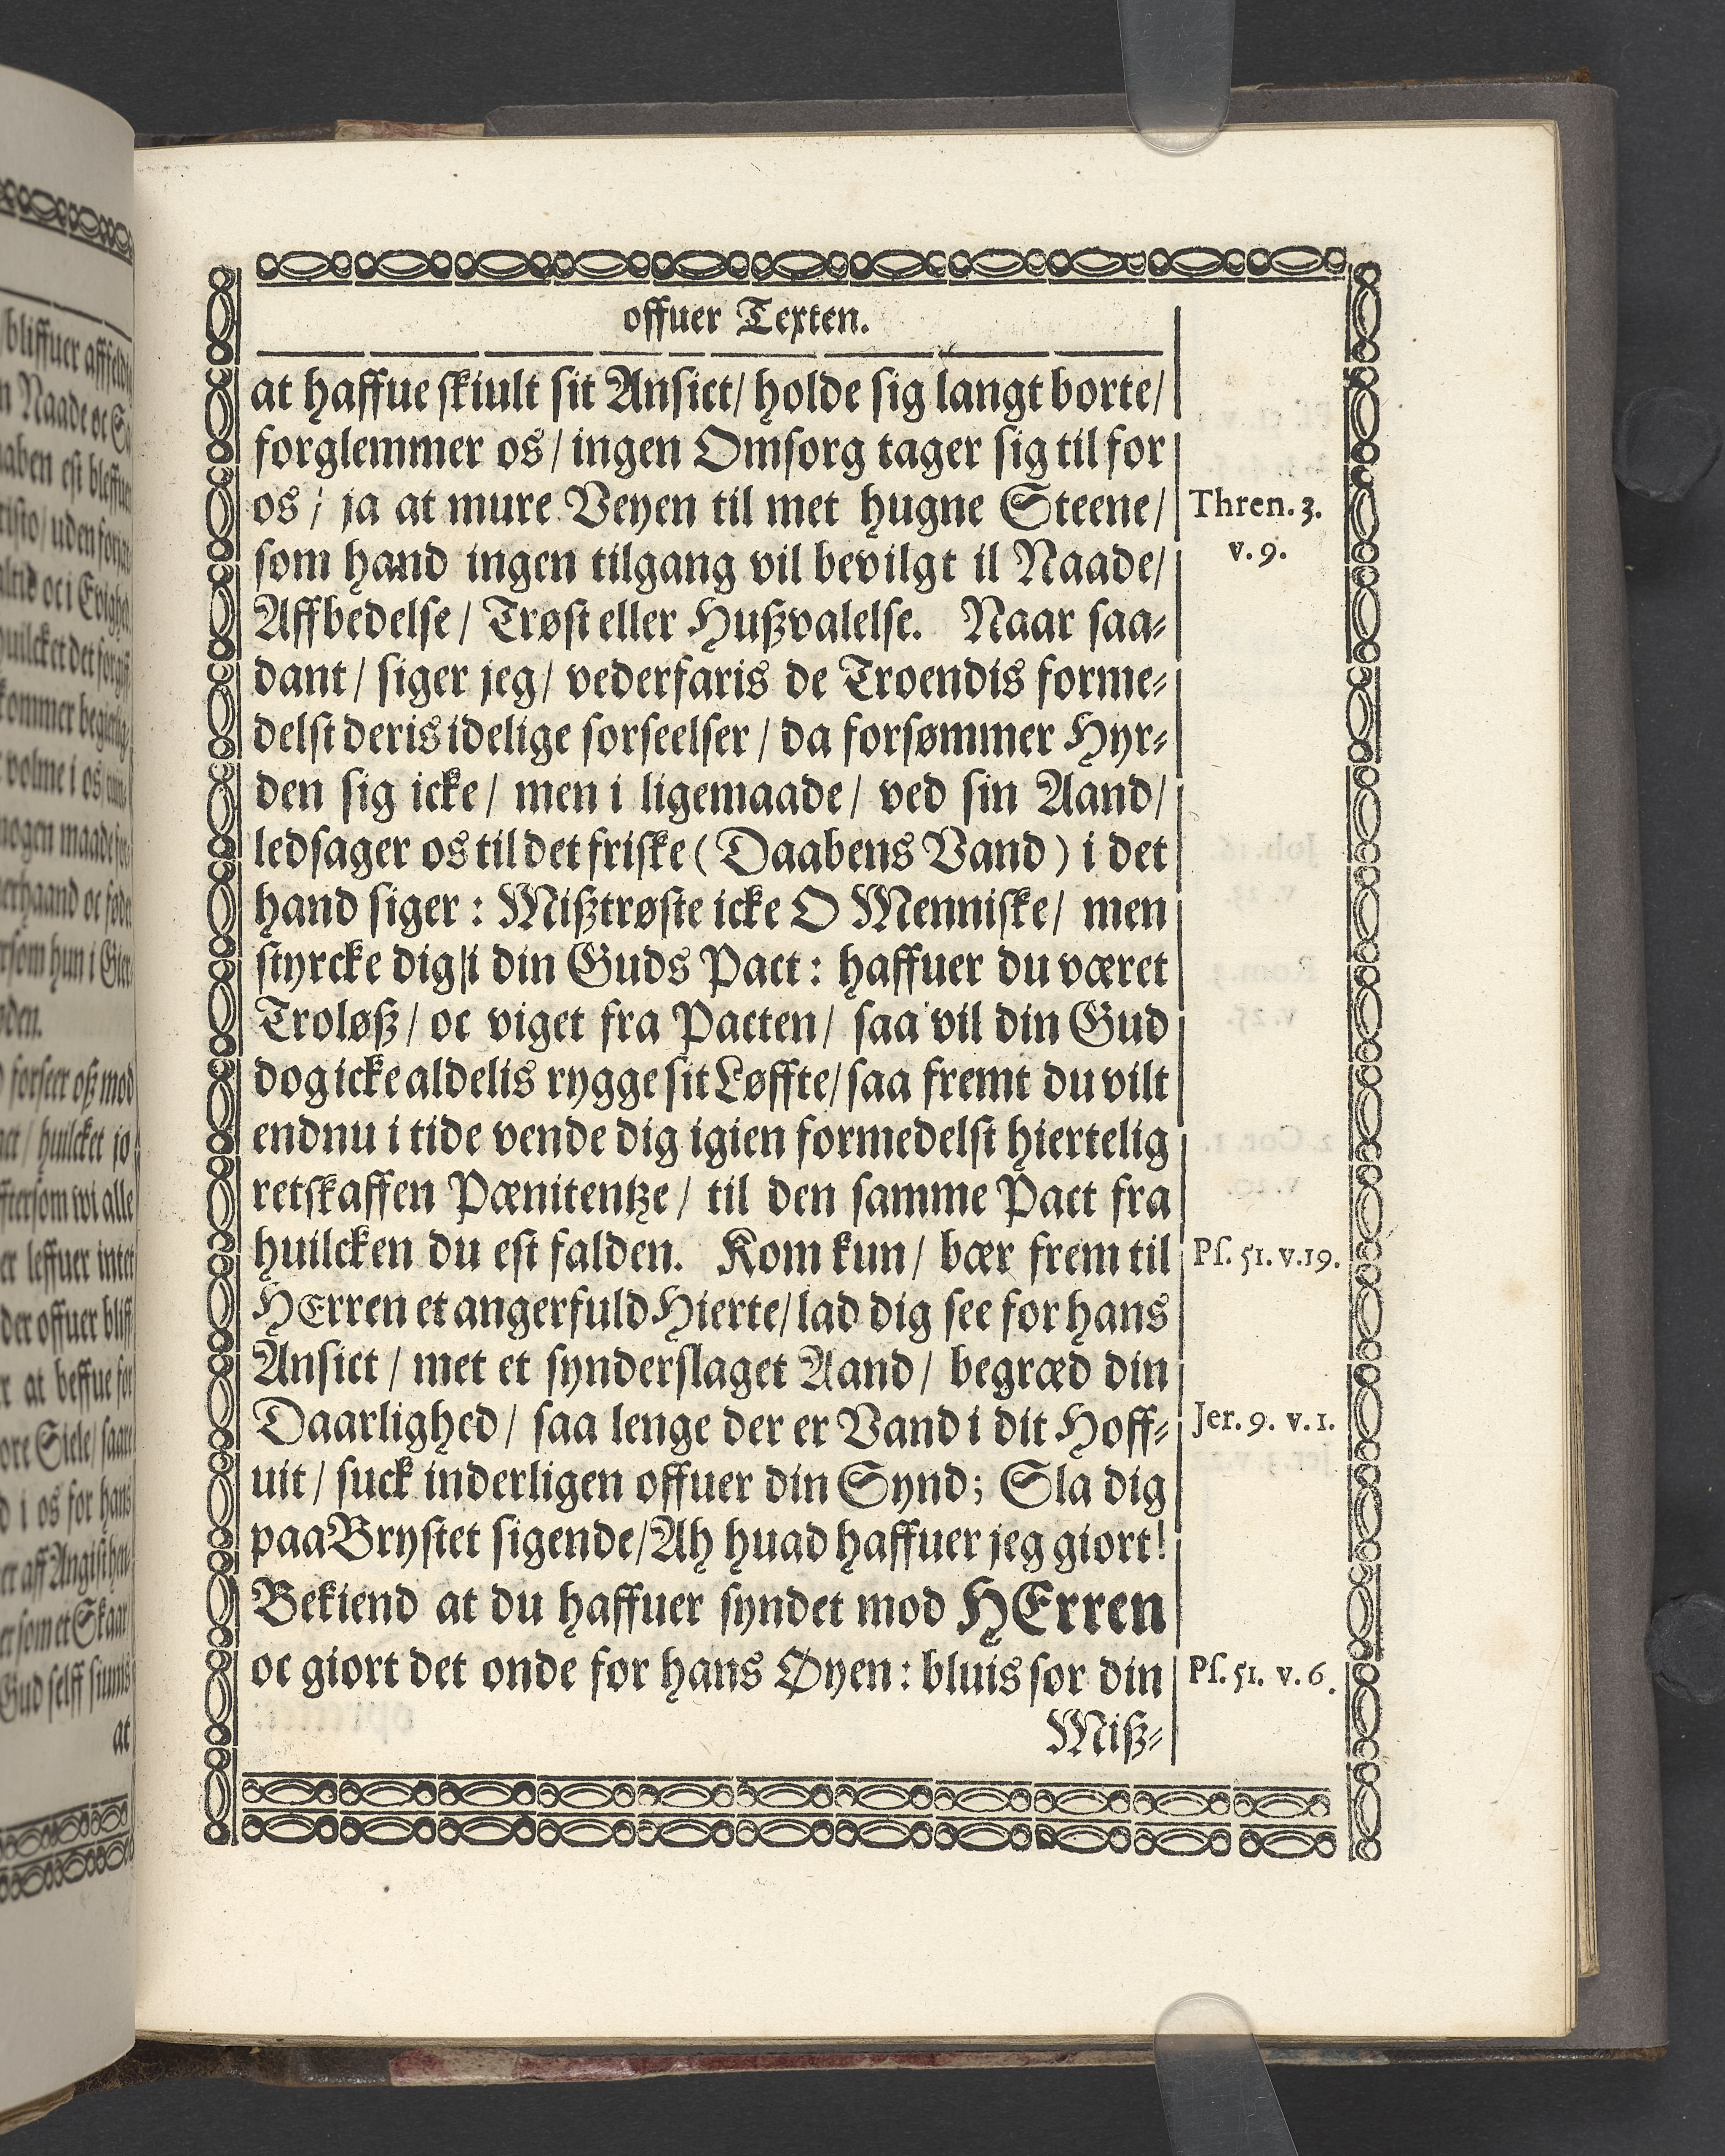 offuer Texten.
at haffue skiult sit Ansict/ holde sig langt borte/
forglemmer os/ ingen Omsorg tager sig til for
os / ja at mure Veyen til met hugne Steene/
Thren. 3.
v. 9.
som hand ingen tilgang vil bevilgt il Naade/
Affbedelse/ Trøst eller Hußvalelse. Naar saa-
dant/ siger jeg/ vederfaris de Troendis forme-
delst deris idelige forseelser / da forsømmer Hyr-
den sig icke/ men i ligemaade/ ved sin Aand/
ledsager os til det friske (Daabens Vand) i det
hand siger : Mißtrøste icke O Menniske/ men
styrcke dig/i din Guds Pact : haffuer du været
Troløß/ oc viget fra Pacten/ saa vil din Gud
dog icke aldelis rygge sit Løffte/ saa fremt du vilt
endnu i tide vende dig igien formedelst hiertelig
retskaffen Pænitentze/ til den samme Pact fra
huilcken du est falden. Kom kun/ bær frem til
Ps. 51. v.19.
HErren et angerfuld Hierte/ lad dig see for hans
Ansict/ met et synderslaget Aand/ begræd din
Daarlighed/ saa lenge der er Vand i dit Hoff-
Jer. 9. v. 1.
uit/ suck inderligen offuer din Synd; Sla dig
paa Brystet sigende/ Ah huad haffuer jeg giort!
Bekiend at du haffuer syndet mod HErren
oc giort det onde for hans Øyen : bluis for din
Ps. 51. v. 6.
Miß-